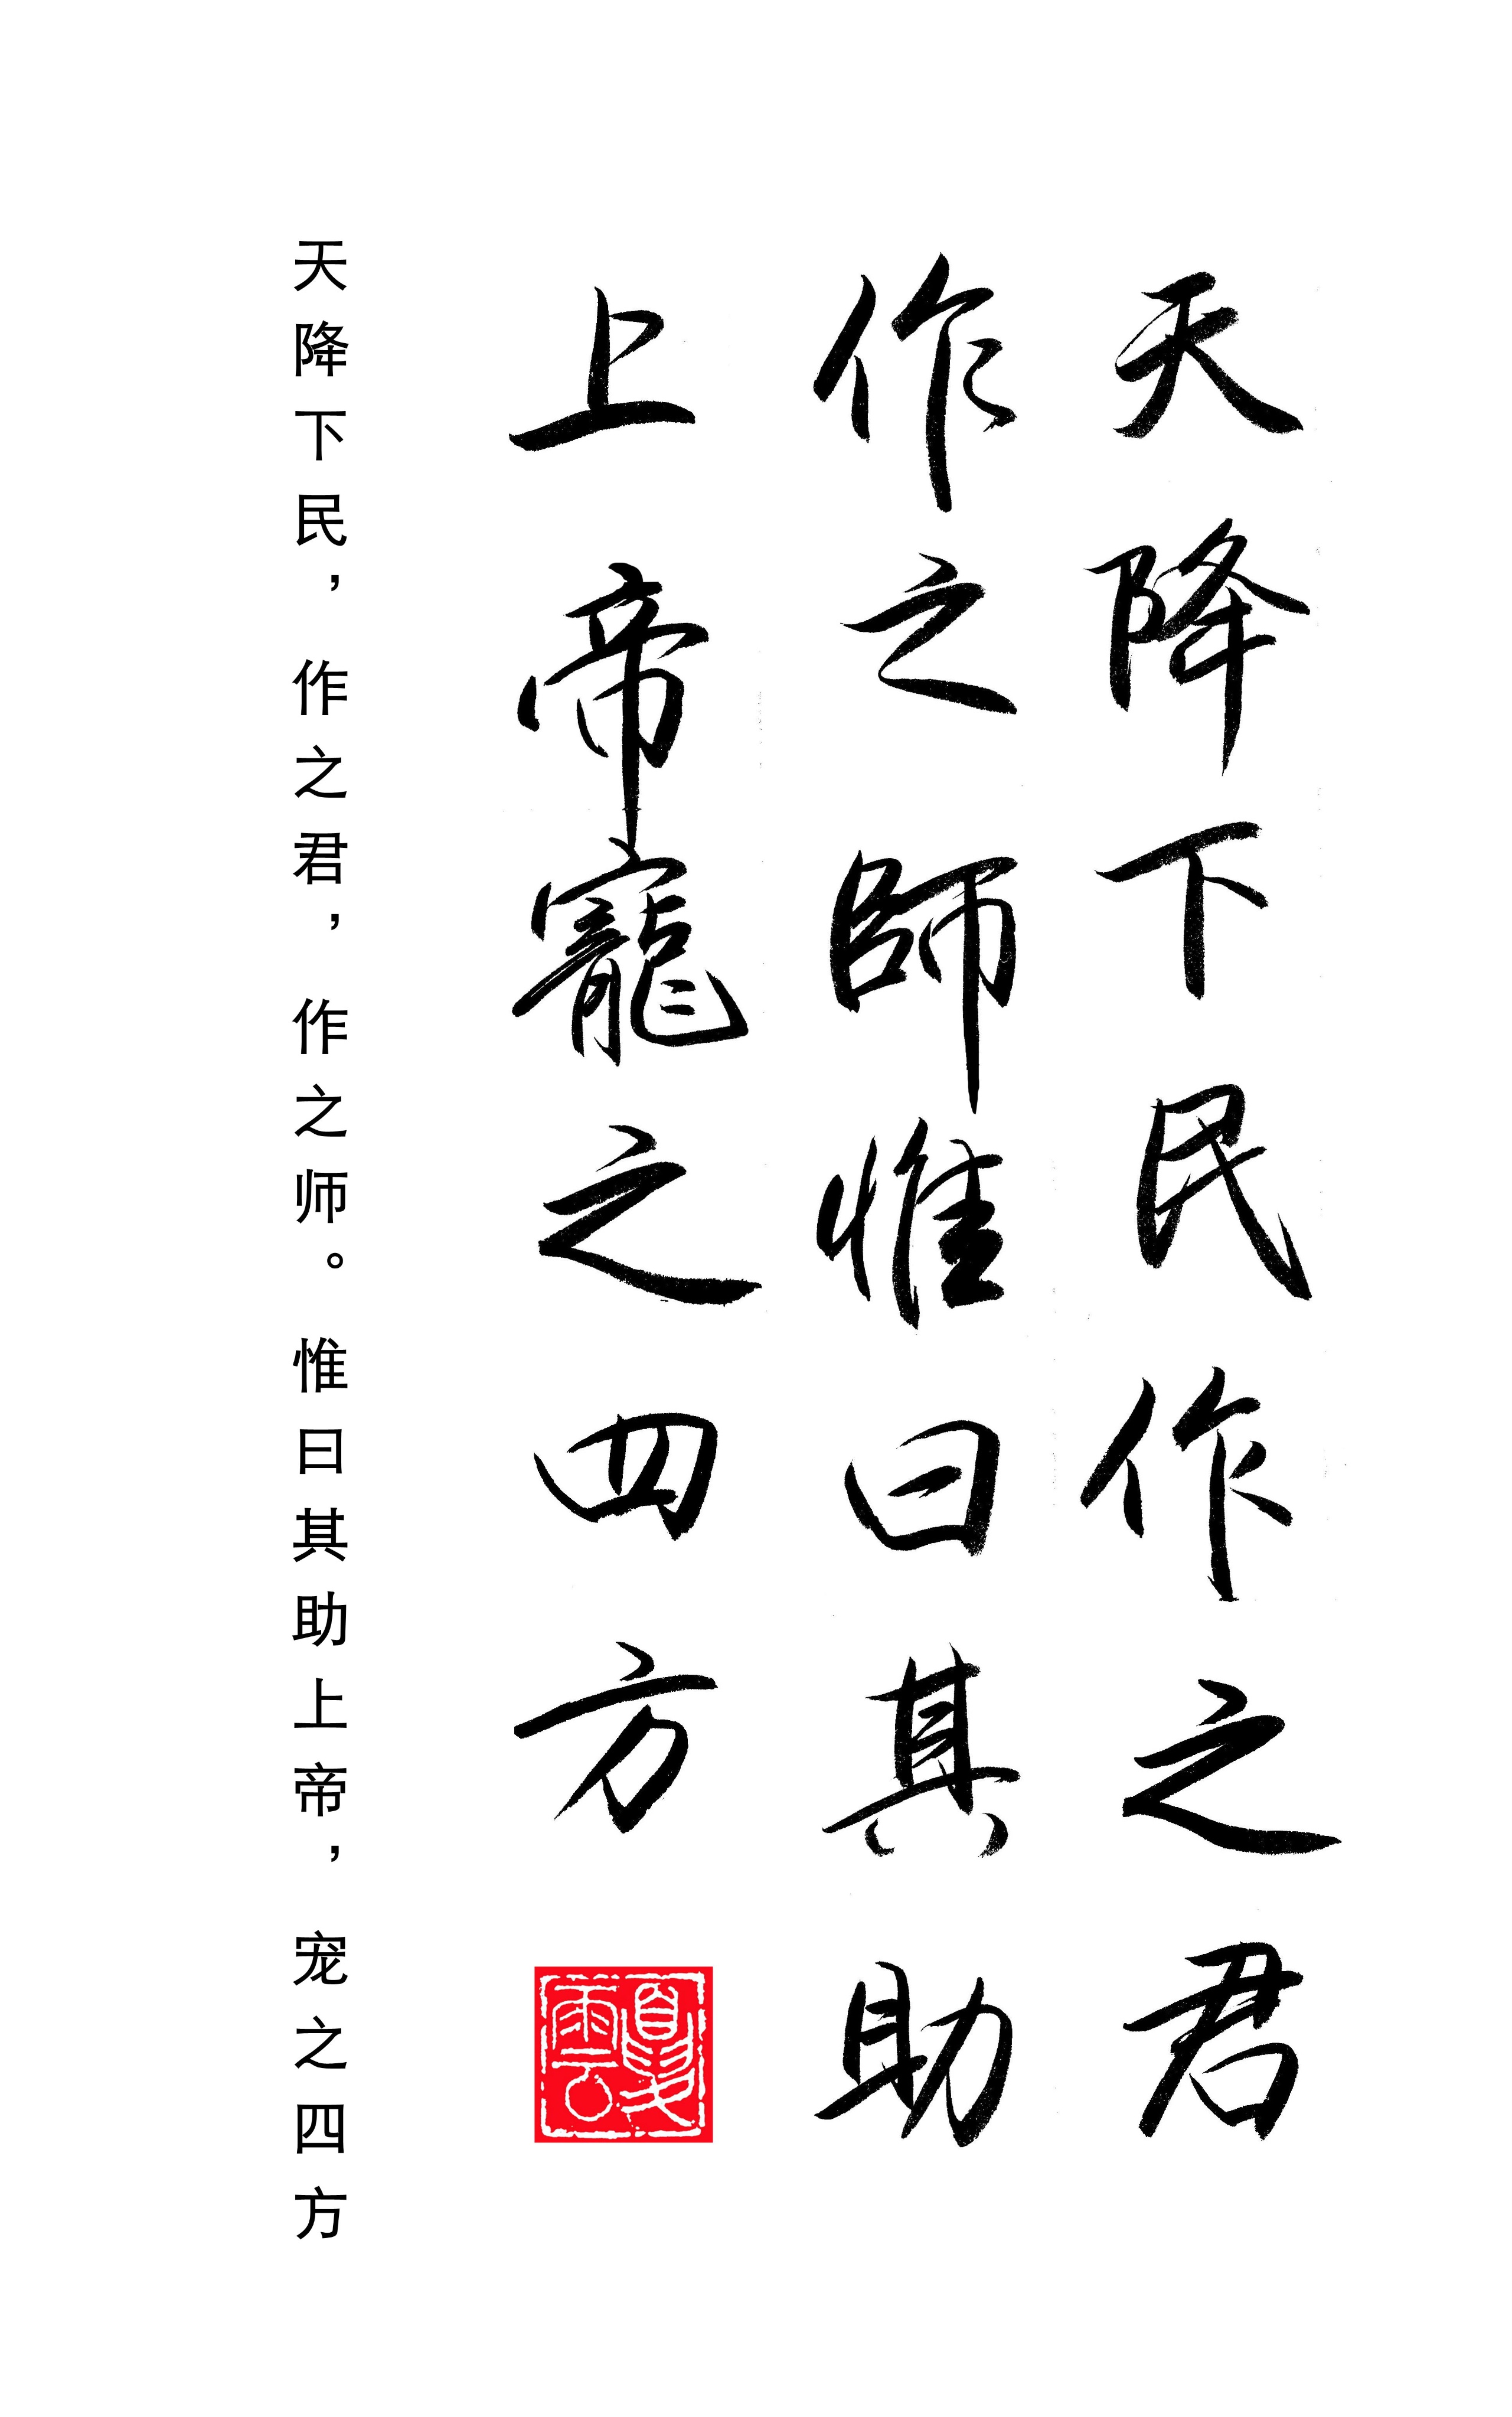 天降下民作之君
作之師惟曰其助
上帝寵之四方
夏雲
天降下民，作之君，作之师。惟曰其助上帝，宠之四方